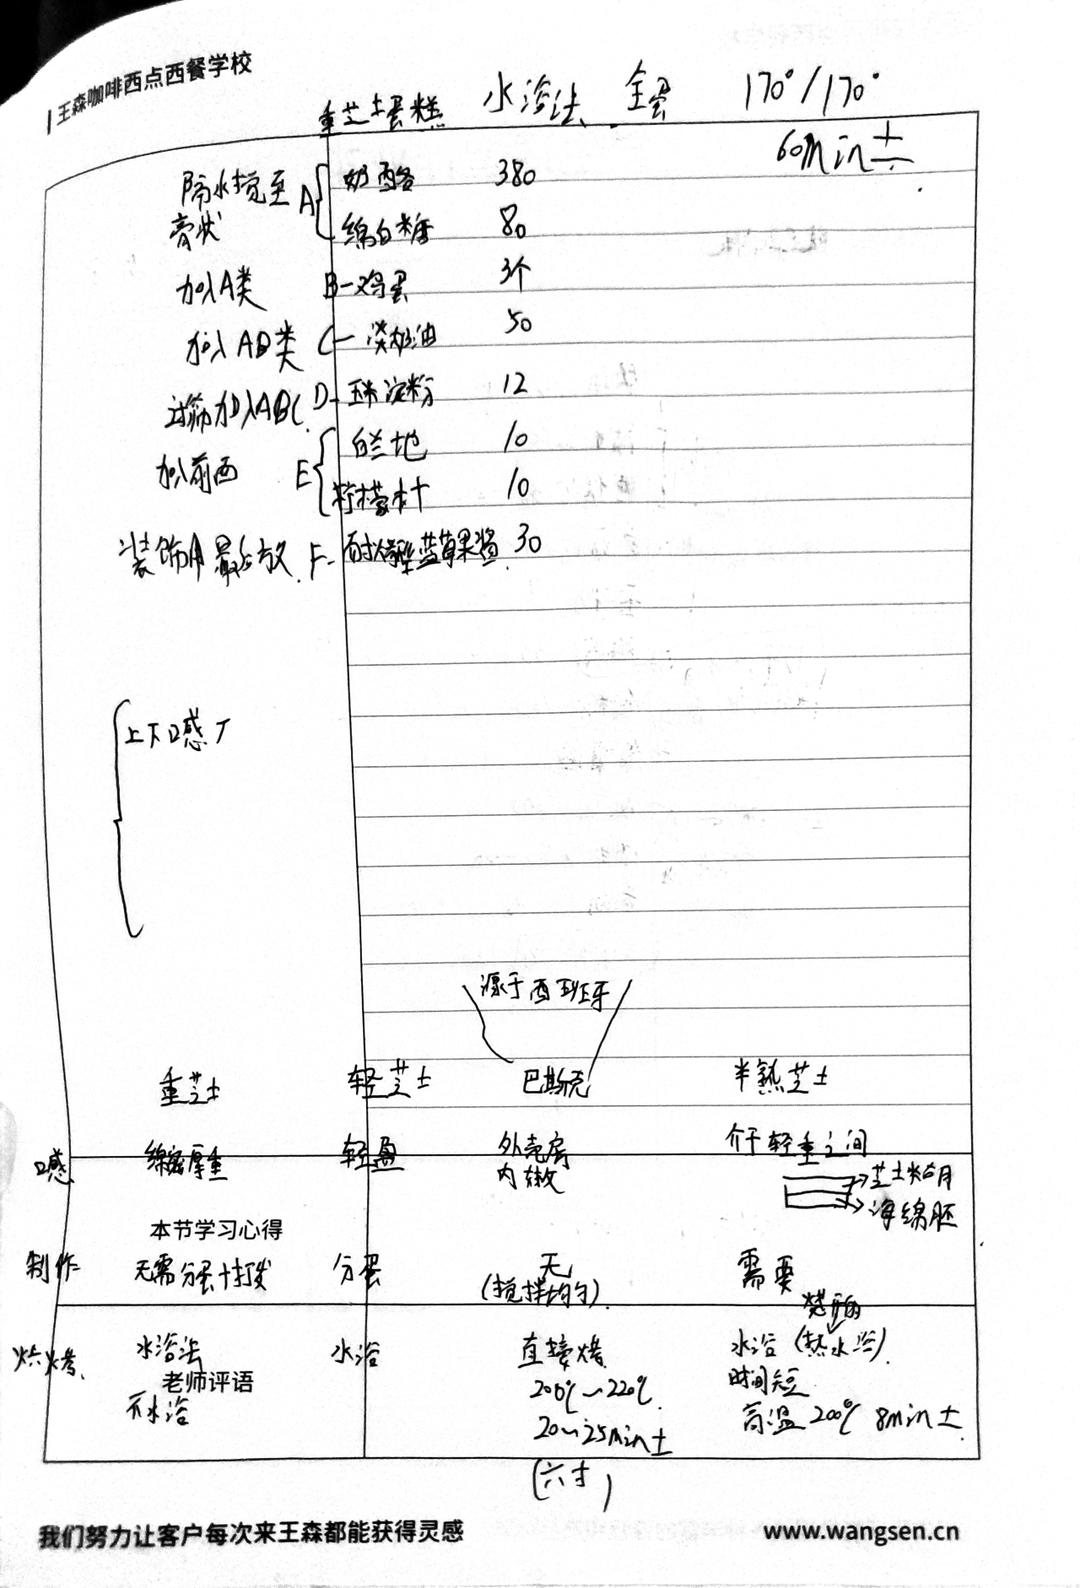 王森咖啡西点西餐学校
重芝士蛋糕 水浴法 全蛋 170°/170°
60min±
隔水搅至膏状 A 奶酪 380
绵白糖 80
加入A类 B-鸡蛋 3个
加入AB类 C-淡奶油 50
过筛加入ABC D-玉米淀粉 12
加入前面 E 白兰地 10
柠檬汁 10
装饰用 最后放 F-耐烤型蓝莓果酱 30
上下口感
源于西班牙
重芝士 轻芝士 巴斯克 半熟芝士
口感 绵密厚重 轻盈 外壳 内嫩 介于轻重之间
芝士
海绵胚
本节学习心得
制作 无需分蛋打发 分蛋 无(搅拌均匀) 需要
烘烤 水浴法 水浴 直接烤 水浴(热水浴)
老师评语
不水浴 200℃~220℃ 时间短
20~25min± 高温200℃ 8min±
(六寸)
我们努力让客户每次来王森都能获得灵感 www.wangsen.cn